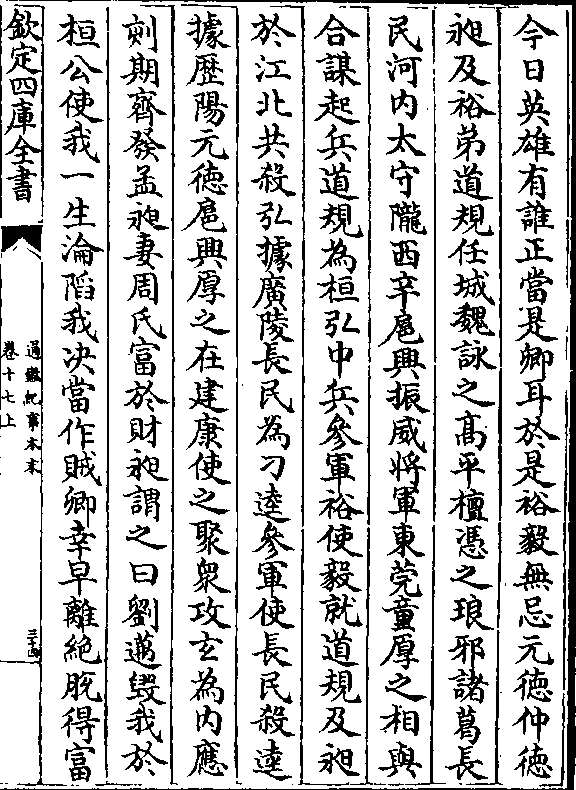 今日英雄有誰正當是卿耳於是裕毅無忌元徳仲徳
昶及裕弟道規任城魏詠之髙平檀憑之琅邪諸葛長
民河内太守隴西辛扈興振威將軍東莞童厚之相與
合謀起兵道規為桓弘中兵參軍裕使毅就道規及昶
於江北共殺弘據廣陵長民為刁逵參軍使長民殺逵
據歴陽元徳扈興厚之在建康使之聚衆攻玄為内應
刻期齊發孟昶妻周氏富於財昶謂之曰劉邁毁我於
桓公使我一生淪䧟我決當作賊卿幸早離絶脫得富
欽定四庫全書
通鑑紀事本末
卷十七上
三十四